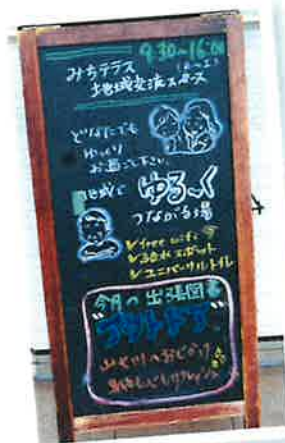 9:30~16:00
みちテラス
地域交流スペース
どなたでも
ゆっくり
お過ごし下さい。
地域で ゆる〜く
つながる場
✓free wifi
✓給水スポット
✓ユニバーサルトイレ
今月の出張図書
"アウトドア"
山や川へおでかけ